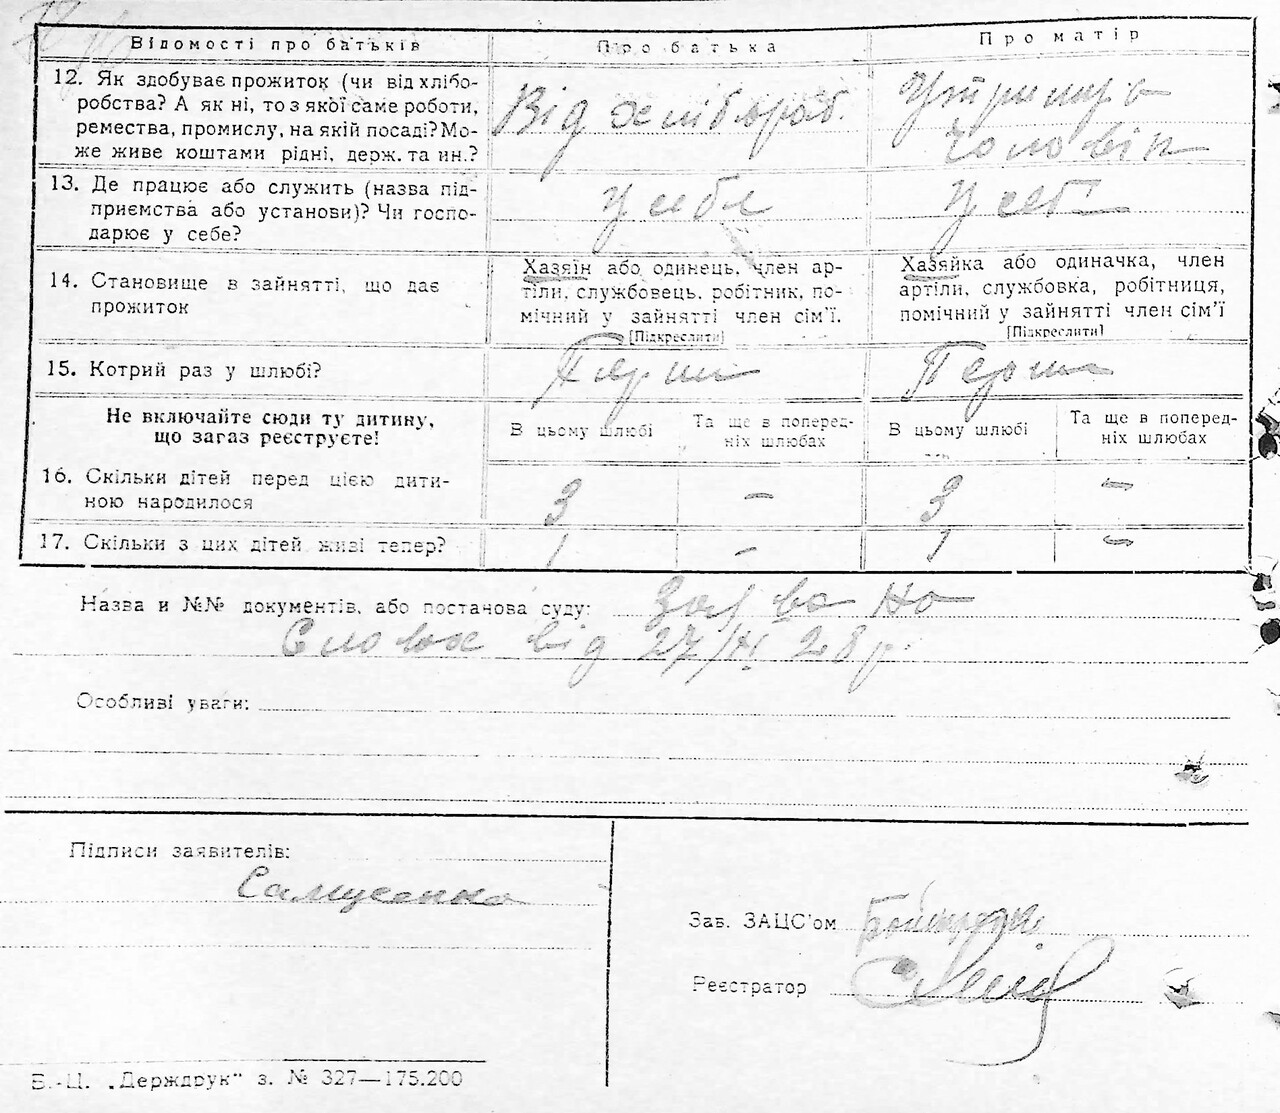 Відомості про батьків
Про батька
Про матір
12. Як здобуває прожиток (чи від хлібо-
робства? А як ні, то з якої саме роботи,
ремества, промислу, на якій посаді? Мо-
же живе коштами рідні, держ. та ин.?
Від хлібороб.
Утримує
чоловік
13. Де працює або служить (назва під-
приємства або установи)? Чи госпо-
дарює у себе?
У себе
У себе
14. Становище в зайнятті, що дає
прожиток
Хазяїн або одинець, член ар-
тіли, службовець, робітник, по-
мічний у зайнятті член сім'ї.
[Підкреслити]
Хазяйка або одиначка, член
артіли, службовка, робітниця,
помічний у зайнятті член сім'ї
[Підкреслити]
15. Котрий раз у шлюбі?
Перш
Перш
Не включайте сюди ту дитину,
що загаз реєструєте!
В цьому шлюбі
Та ще в поперед-
ніх шлюбах
В цьому шлюбі
Та ще в поперед-
ніх шлюбах
16. Скільки дітей перед цією дити-
ною народилося
3
-
3
-
17. Скільки з цих дітей живі тепер?
1
-
1
-
Назва и №№ документів, або постанова суду:
Словах від 27/XI 28 р.
Особливі уваги:
Підписи заявителів:
Самусенко
Зав. ЗАЦС'ом
Реєстратор
Б.-Ц. „Держдрук" з. № 327—175.200